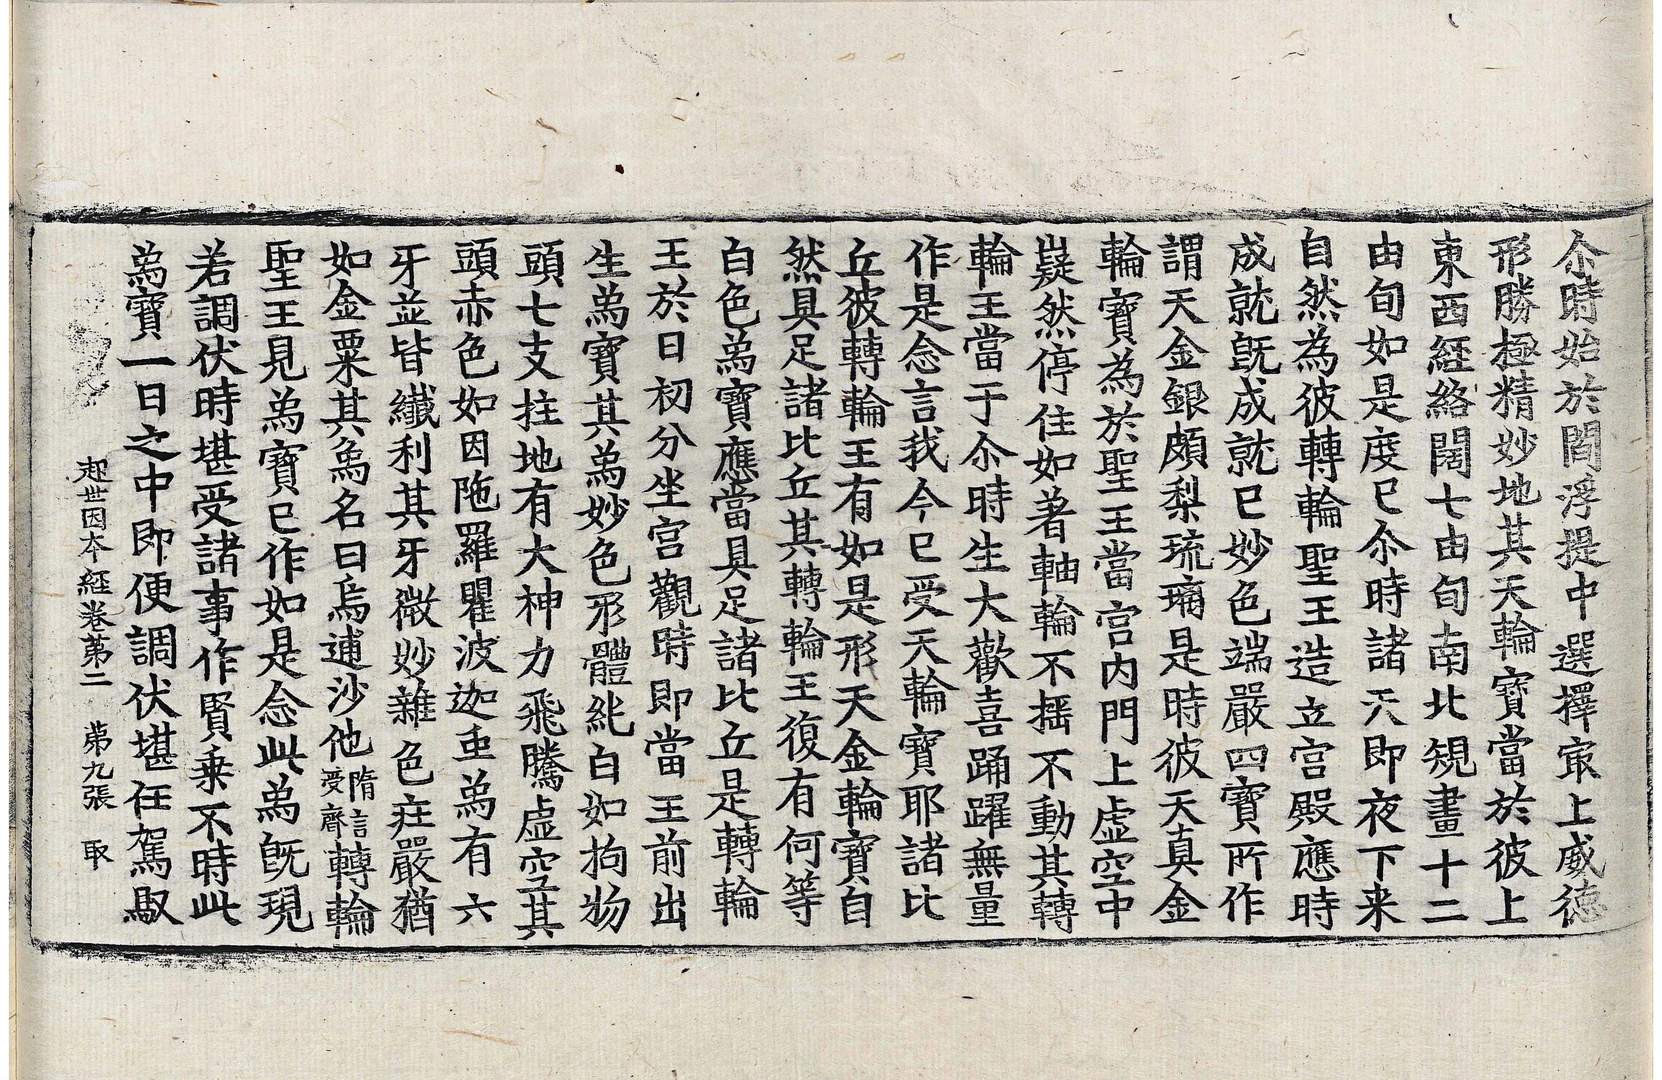 尒時始於閻浮提中選擇㝡上威德
形勝極精妙地其天輪寶當於彼上
東西經絡闊七由旬南北規畫十二
由旬如是度已尒時諸天即夜下来
自然為彼轉輪聖王造立宫殿應時
成就旣成就已妙色端嚴四寶所作
謂天金銀頗梨琉璃是時彼天真金
輪寶為於聖王當宫内門上虛空中
嶷然停住如著軸輪不揺不動其轉
輪王當于尒時生大歡喜踊躍無量
作是念言我今已受天輪寶耶諸比
丘彼轉輪王有如是形天金輪寶自
然具足諸比丘其轉輪王復有何等
白色爲寶應當具足諸比丘是轉輪
王於日初分坐宫觀時即當王前出
生爲寶其爲妙色形體純白如拘物
頭七支拄地有大神力飛騰虛空其
頭赤色如因陁羅瞿波迦虫爲有六
牙並皆纎利其牙微妙雜色莊嚴猶
如金粟其爲名曰烏逋沙他隋言受齋轉輪
聖王見爲寶已作如是念此爲旣現
若調伏時堪受諸事作賢乗不時此
爲寶一日之中即便調伏堪任駕馭
起世因本經卷第二 第九張 取